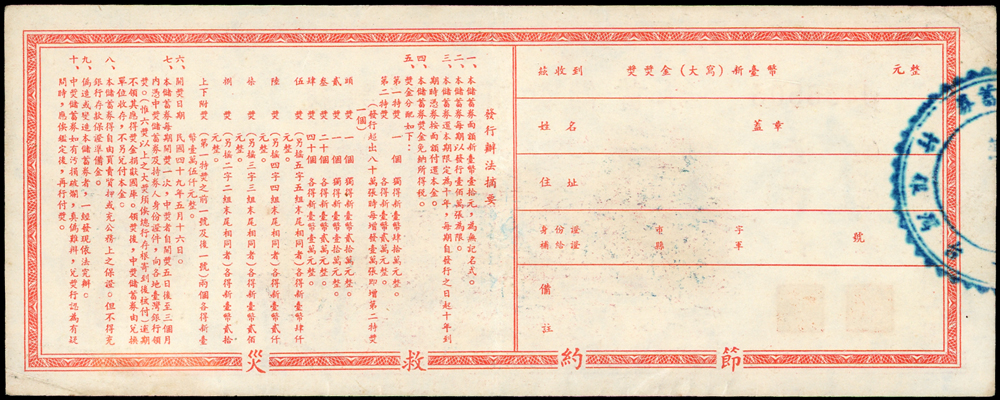 茲收到 獎獎金（大寫）新臺幣 元整
姓名 蓋章
住址
身份證
補給證
市
縣
字
軍
號
備註
發行辦法摘要
一、本儲蓄券面額新臺幣壹拾元，為無記名式。
二、本儲蓄券每期以發行壹佰萬張為限。
三、本儲蓄券還本期限定為十年，每期自發行之日起十年到
期時憑券按面額付還本金。
四、本儲蓄券獎金免納所得稅。
五、獎金分配如下：
第一特獎 一個 獨得新臺幣肆拾萬元整。
第二特獎 一個 各得新臺幣貳萬元整。
（發行超出八十萬張時每增發壹萬張即增第二特獎
一個）
頭獎 一個 獨得新臺幣貳拾萬元整。
貳獎 一個 獨得新臺幣壹拾萬元整。
叁獎 二十個 各得新臺幣貳萬元整。
肆獎 四十個 各得新臺幣壹萬元整。
伍獎 （另搖五字五組末尾相同者）各得新臺幣肆仟
元整。
陸獎 （另搖四字四組末尾相同者）各得新臺幣貳仟
元整。
柒獎 （另搖三字三組末尾相同者）各得新臺幣貳佰
元整。
捌獎 （另搖二字二組末尾相同者）各得新臺幣貳拾
元整。
上下附獎 （第一特獎之前一號及後一號）兩個各得新臺
幣壹萬伍仟元整。
六、開獎日期 民國四十九年五月十六日。
七、本儲蓄券每期開獎一次，中獎者自開獎五日後至三個月
內憑中獎儲蓄券及持券人身份證件，向各地臺灣銀行領
獎。（惟六獎以上之大獎須俟總行存根寄到後核付）逾期
不領其應得獎金捐獻國庫。領獎後，中獎儲蓄券由兌換
單位收存，不另兌付本金。
八、本儲蓄券得自由買賣質押或充公務上之保證。但不得充
銀行存款保證準備金。
九、偽造或變造本儲蓄券者，一經發現依法究辦。
十、中獎儲蓄券如有污損破爛，真偽難辨，兌獎行認為有疑
問時，應俟鑑定後，再行付獎。
節約救災